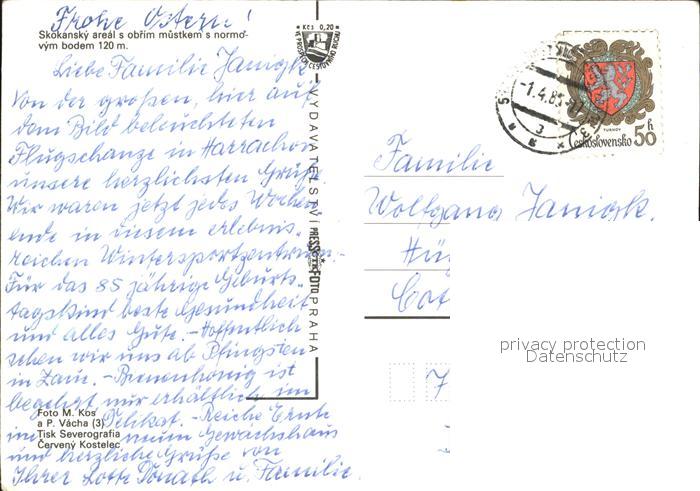 Frohe Ostern!
Skokanský areál s obřím můstkem s normo-
vým bodem 120 m.
Liebe Familie Janigk
Von der großen, hier auf
dem Bild beleuchteten
Flugschanze in Harrachov
unsere herzlichsten Grüße.
Wir waren jetzt jedes Wochen-
ende in diesem erlebnis-
reichen Wintersportzentrum.-
Für das 85 jährige Geburts-
tagskind beste Gesundheit
und alles Gute. - Hoffentlich
sehen wir uns ab Pfingsten
in Zaue. - Bienenhonig ist
begehrt, nur erhältlich im
Delikat. - Reiche Ernte
im neuen Gewächshaus
und herzliche Grüße von
Ihrer Lotte Donath u. Familie.
Foto M. Kos
a P. Vácha (3)
Tisk Severografia
Červený Kostelec
Kčs 0,20
VE PROSPĚCH CESTOVNÍHO RUCHU
VYDAVATELSTVÍ PRESSFOTO PRAHA
-1.4.85
3
TURNOV
Československo 50 h
Familie
Wolfgang Janigk.
Hü
Cot
7
privacy protection
Datenschutz